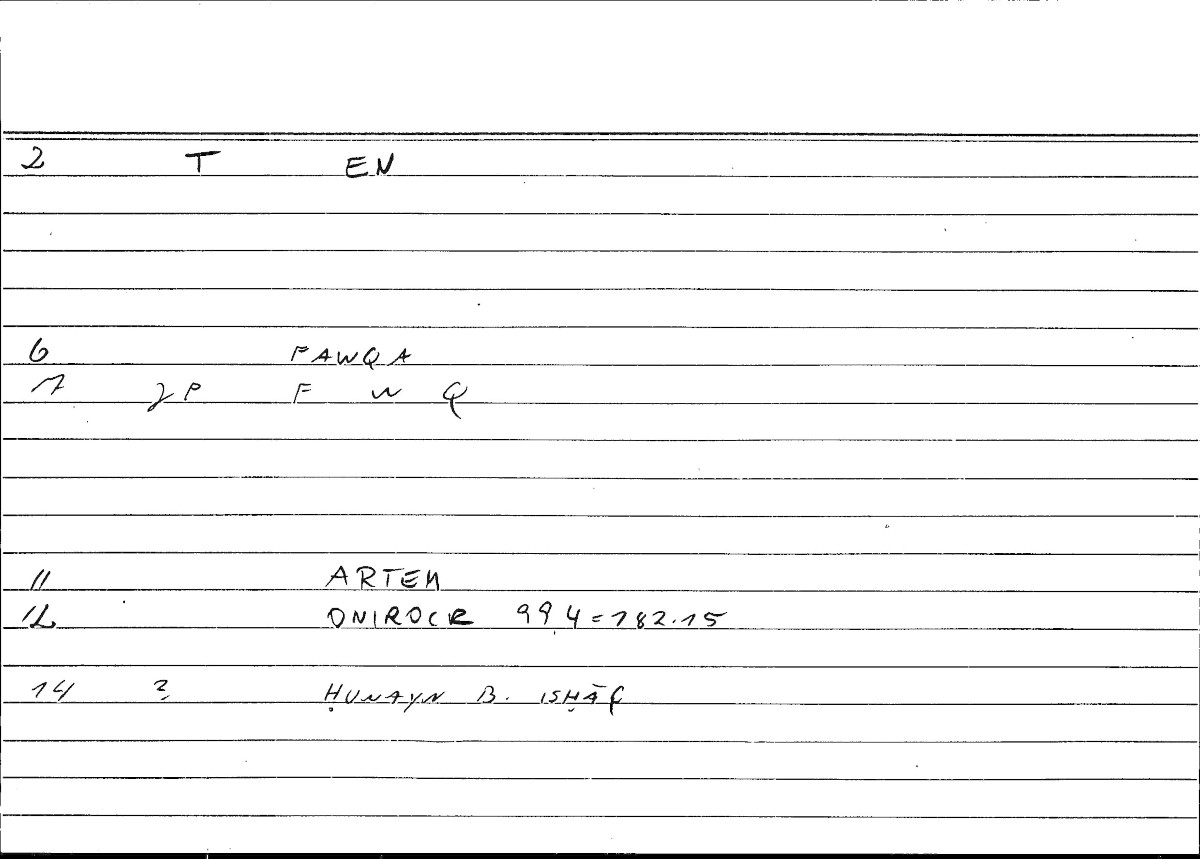 2 T EN
6 FAWQA
7 JP F W Q
11 ARTEM
12 ONIROCR 994=182.15
14 ? ḤUNAYN B. ISḤĀQ